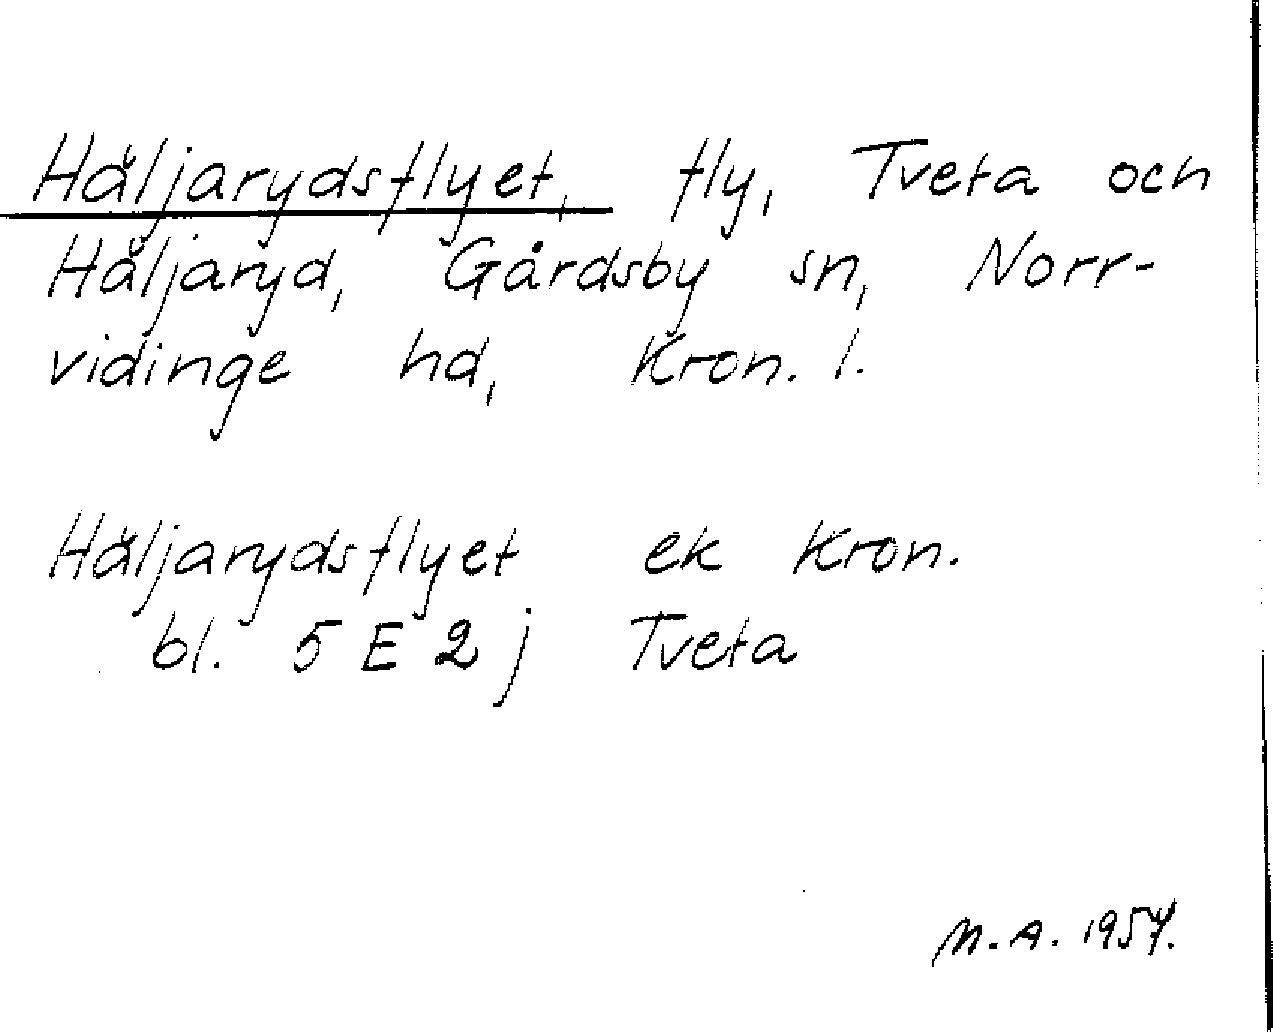 Häljarydsflyet, fly, Tveta och
Häljaryd, Gårdsby sn, Norr-
vidinge hd, Kron. l.
Häljarydsflyet ek Kron.
bl. 5 E 2 j Tveta
M.A. 1957.